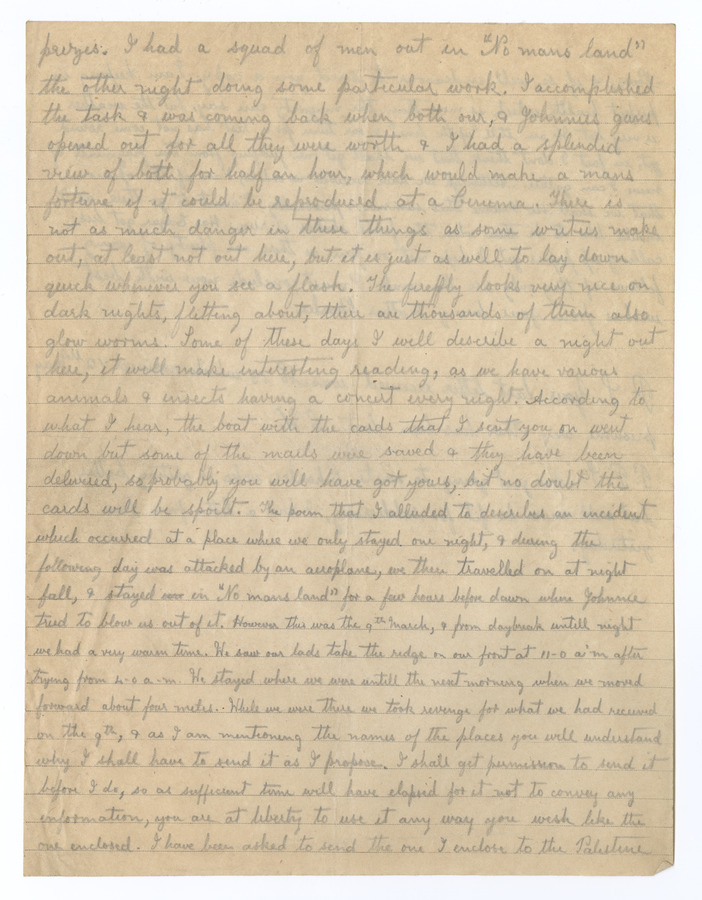 prizes. I had a squad of men out in "No mans land"
the other night doing some particular work. I accomplished
the task & was coming back when both our, & Johnnies guns
opened out for all they were worth & I had a splendid
view of both for half an hour, which would make a mans
fortune if it could be reproduced at a Cinema. There is
not as much danger in these things as some writers make
out, at least not out here, but it is just as well to lay down
quick whenever you see a flash. The firefly looks very nice on
dark nights, flitting about, there are thousands of them also
glow worms. Some of these days I will describe a night out
here, it will make interesting reading, as we have various
animals & insects having a concert every night. According to
what I hear, the boat with the cards that I sent you on went
down but some of the mails were saved & they have been
delivered, so probably you will have got yours, but no doubt the
cards will be spoilt. The poem that I alluded to describes an incident
which occurred at a place where we only stayed one night, & during the
following day was attacked by an aeroplane, we then travelled on at night
fall, & stayed over in "No mans land" for a few hours before dawn when Johnnie
tried to blow us out of it. However this was the 9th March, & from daybreak untill night
we had a very warm time. We saw our lads take the ridge on our front at 11-0 a.m after
trying from 4-0 a-m. We stayed where we were untill the next morning when we moved
forward about four miles. While we were there we took revenge for what we had received
on the 9th, & as I am mentioning the names of the places you will understand
why I shall have to send it as I propose. I shall get permission to send it
before I do, so as sufficient time will have elapsed for it not to convey any
information, you are at liberty to use it any way you wish like the
one enclosed. I have been asked to send the one I enclose to the Palestine